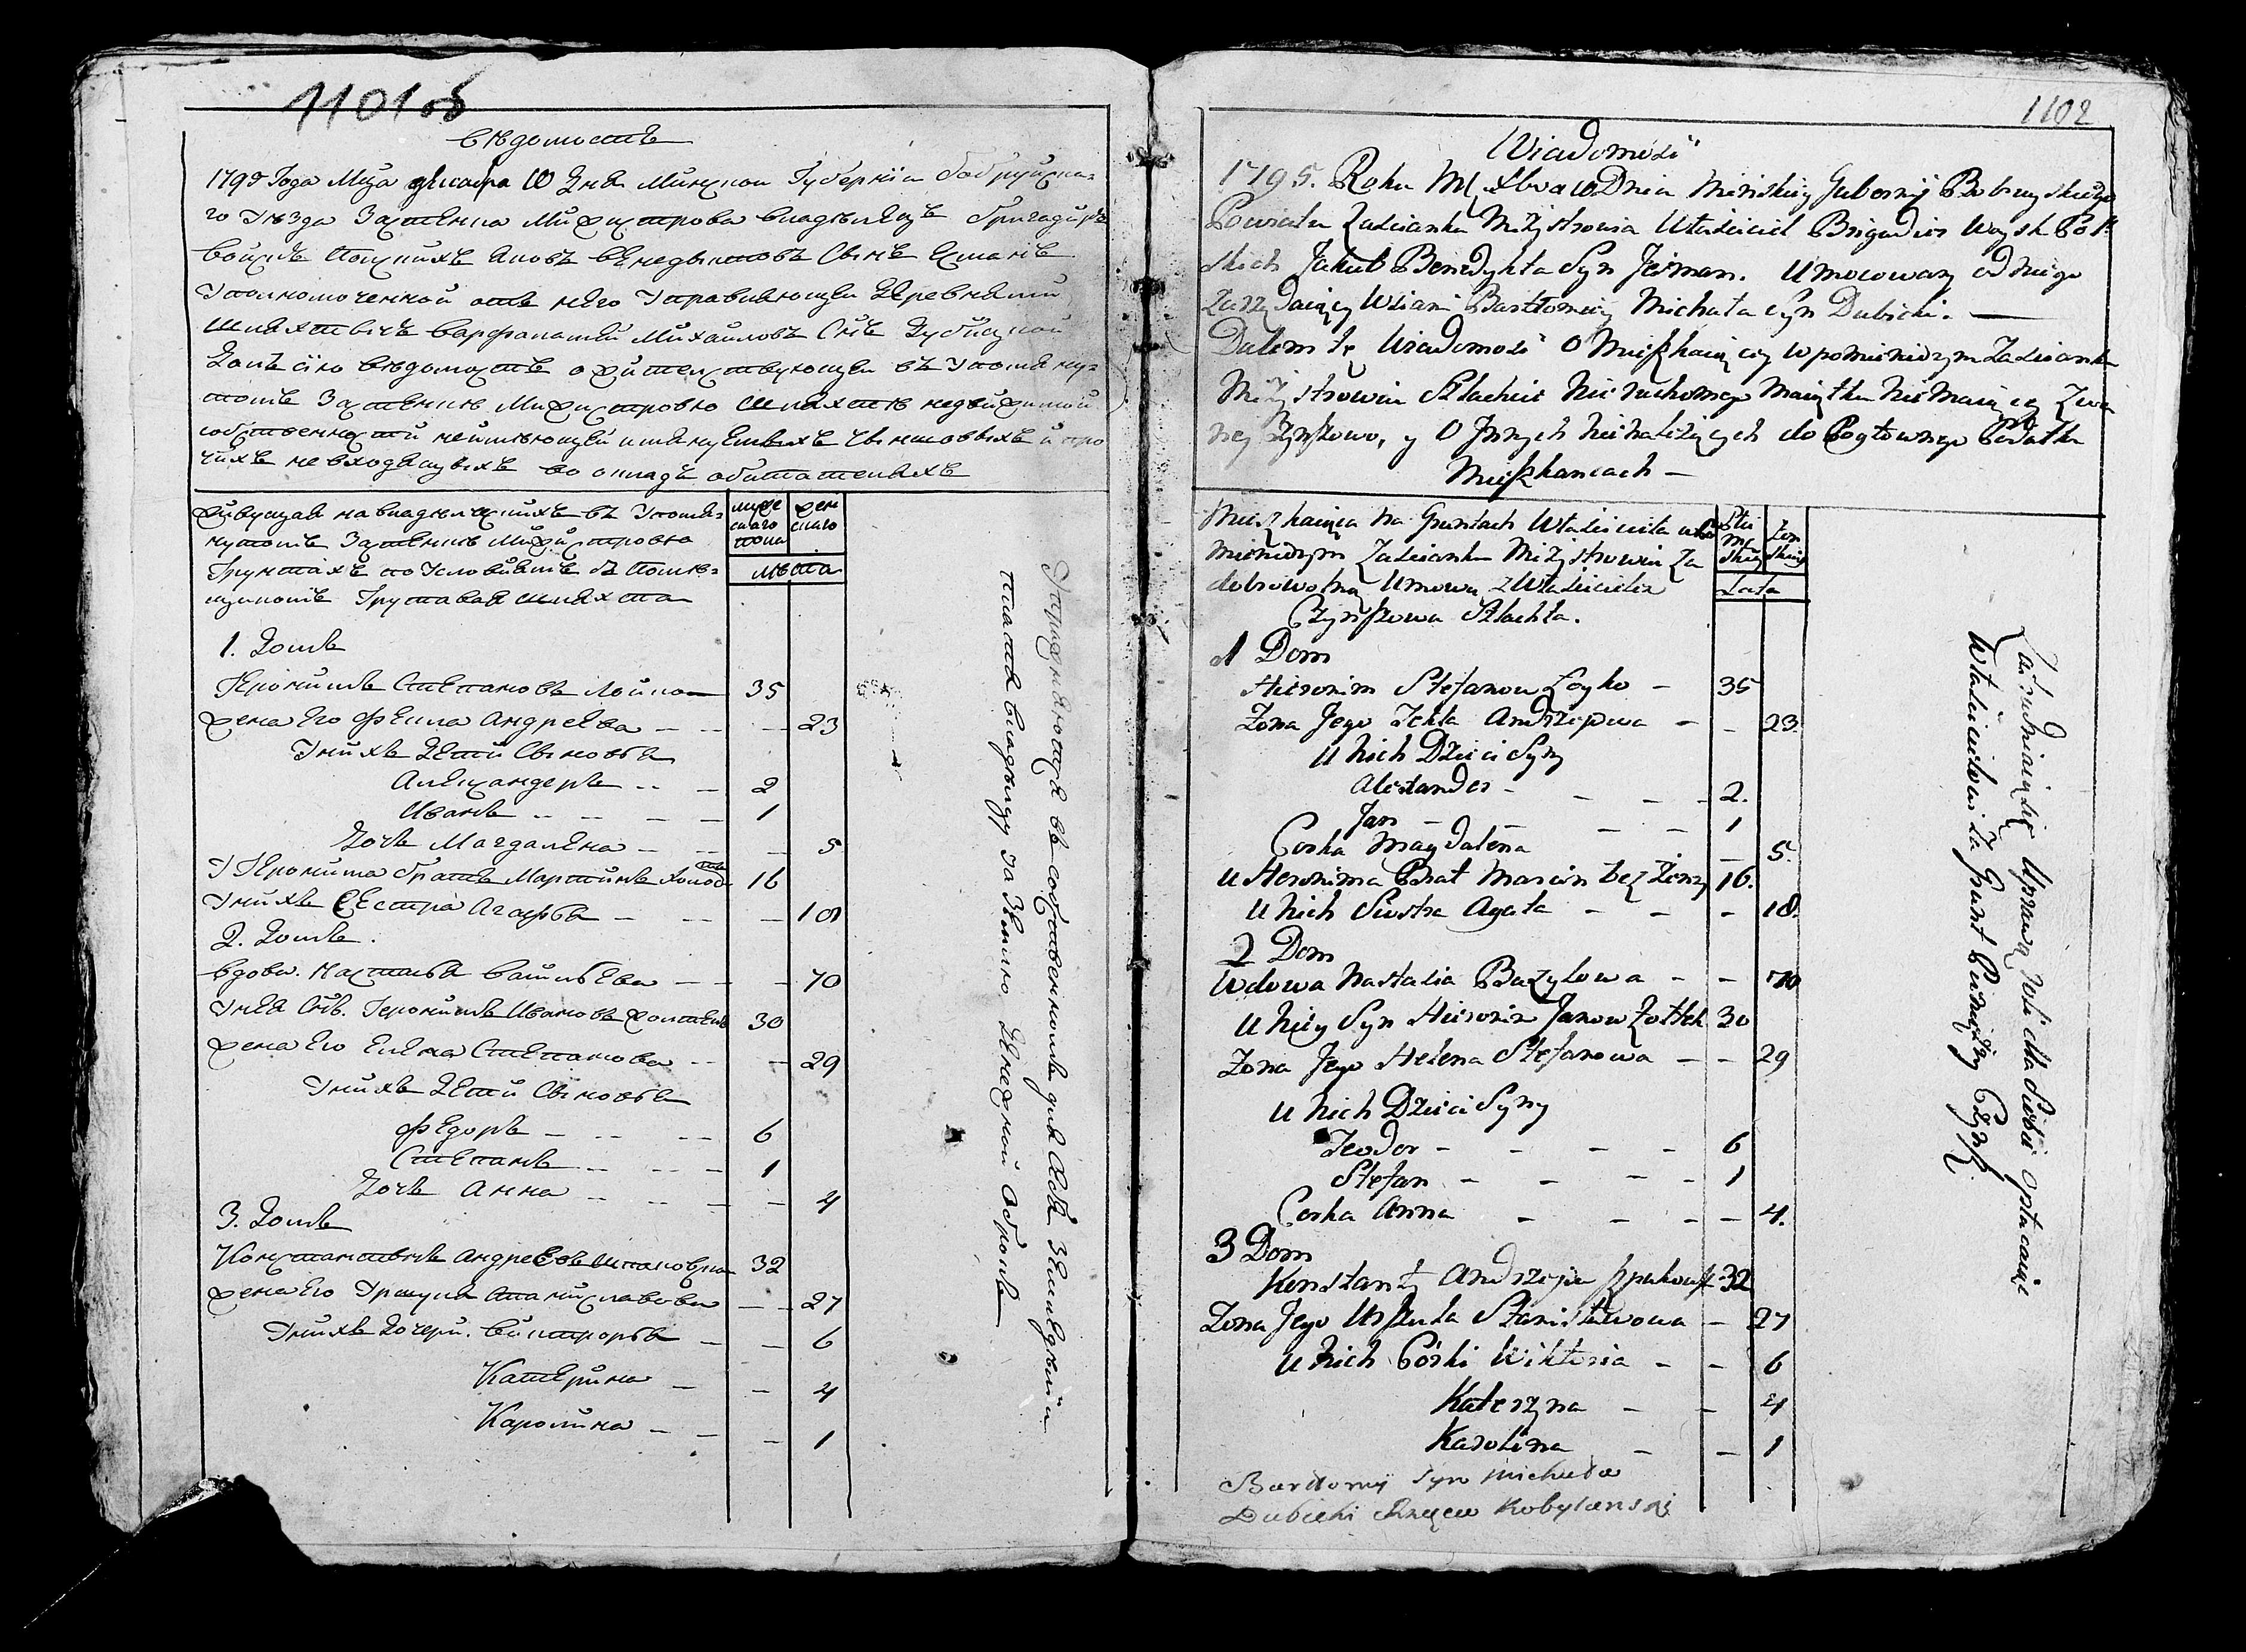 1101 об
Вѣдомость
1795 Года Мца декабря 10 дня Минской Губерніи Бобруйска-
го Уѣзда Застенка Мижистрова владѣлецъ бригадиръ
войскъ Польскихъ Яковъ Бенедыктовъ Сынъ Есманъ
Уполномоченной отъ него Управляющей деревнями
шляхтичъ варфаламей Михайловъ Снъ Дубицкой
Далъ сію вѣдомость о жительствующей въ Упомяну-
томъ Застенкѣ Мижистровю шляхтѣ недвижимой
собственности неимѣющей имянуемыхъ чыншовыхъ и про
чихъ невходящыхъ во окладъ обитателяхъ
живущая на владѣлскихъ въ Упомя-
нутомъ Застенкѣ Мижистровю
Грунтахъ по Условіямъ
Шляхта
муже
скаго
пола
жен
скаго
лѣта
1. Домъ
Героnимъ Степановъ Лойко 35
жена Его Фекла Андреева 23
Унихъ дети Сыновья
Александеръ 2
Иванъ 1
Дочь Магдалена 5
У Геронима братъ Мартинъ холост 16
Унихъ Сестра Агафья 18
2. Домъ.
вдова. Настасья Васильева 70
Унея Снъ. Геронимъ Ивановъ 30
жена Его Елена Степанова 29
Унихъ дети Сыновья
Федоръ 6
Степанъ 1
Дочь Анна 4
3. Домъ
Константинъ Андреевъ Шпаковска 32
жена Его Уршуля Станиславова 27
Унихъ Дочери. Викторья 6
Катерина 4
Каролина 1
Упражняющая въ собственномъ для себя Земледѣліи
платя владѣлцу за Землю Денежной Оброкъ
1102
Wiadomość
1795. Roku M[ Xbra 10 Dnia Minskiey Gubernij Bobruyskiego
Powiatu Zascianku Miżystrowia Właściciel Brigadier Woysk Pol
skich Jakub Benedykta Syn Jesman. Umocowany od niego
Zarządaiący Wsiami Bartłomiey Michała Syn Dubicki. —
Dałem tę Wiadomość O Mieszkaiącey w pomienionym Zascianku
Miżystrowiu Szlachcie Nieruchomego Maiątku Niemaiącey Zwa
ney Czynszowo, y O Jnnych Nienależących do Pogłownego Podatku
Mieszkancach —
Mieszkaiąca na Gruntach Właściciela wPo
mienionym Zascianku Miżystrowiu Za
dobrowolną Umową z Właścicielem
Czynszowa Szlachta.
Płci
Mę
skiey
Żen
skiey
Lata
1 Dom
Hieronim Stefanow Łoyko - 35
Żona Jego Tekla Andrzejewa - - 23.
U Nich Dzieci Syny
Alexander - - - - 2.
Jan - - - - 1
Corka Magdalena - 5.
u Heronima Brat Marcin bez Żony 16.
U Nich Siostra Agata - - - 18.
2 Dom
Wdowa Nastazia Bazylowa - - 70
U Niey Syn Hieronim Janow Żołtek 30
Żona Jego Helena Stefanowa - - 29
U Nich Dzieci Syny
Teodor - - - - 6
Stefan - - - - 1
Corka Anna - - - - 4.
3 Dom
Konstanty Andrzeja Szpakowsk 32
Żona Jego Urszula Stanisławowa - 27
U Nich Córki Wiktoria - - 6
Katerzyna - - 4
Karolina - - 1
Bartłomiy Syn Michała
Dubicki
Zatrudniaiąca się Uprawą Roli dla Siebie opłacaiąc
Właścicielowi Za Grunt Pieniężny Czynsz.